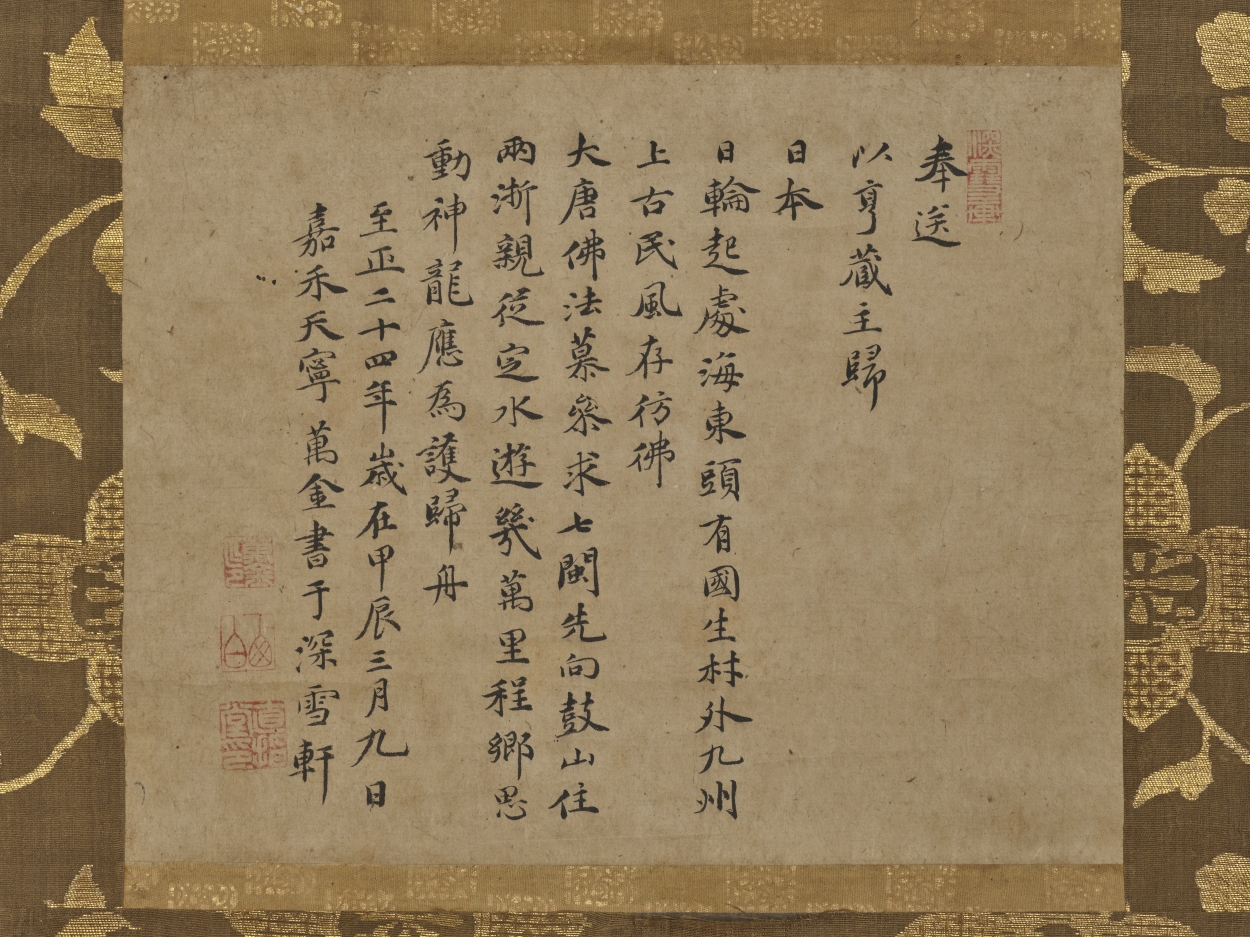 奉送
以亨蔵主歸
日本
日輪起處海東頭有國生林外九州
上古民風存彷彿
大唐佛法慕叅求七閩先向鼓山住
兩浙親從定水遊幾萬里程鄉思
動神龍應為護歸舟
至正二十四年歲在甲辰三月九日
嘉禾天寧萬金書于深雪軒